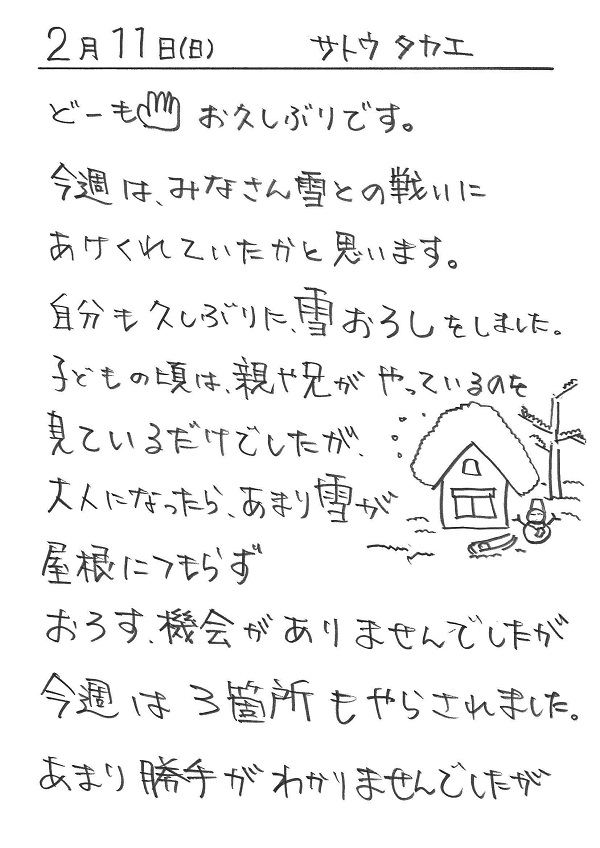 2月11日(日) サトウ タカエ
どーも お久しぶりです。
今週は、みなさん雪との戦いに
あけくれていたかと思います。
自分も久しぶりに、雪おろしをしました。
子どもの頃は、親や兄がやっているのを
見ているだけでしたが、
大人になったら、あまり雪が
屋根につもらず
おろす、機会がありませんでしたが
今週は3箇所もやらされました。
あまり勝手がわかりませんでしたが